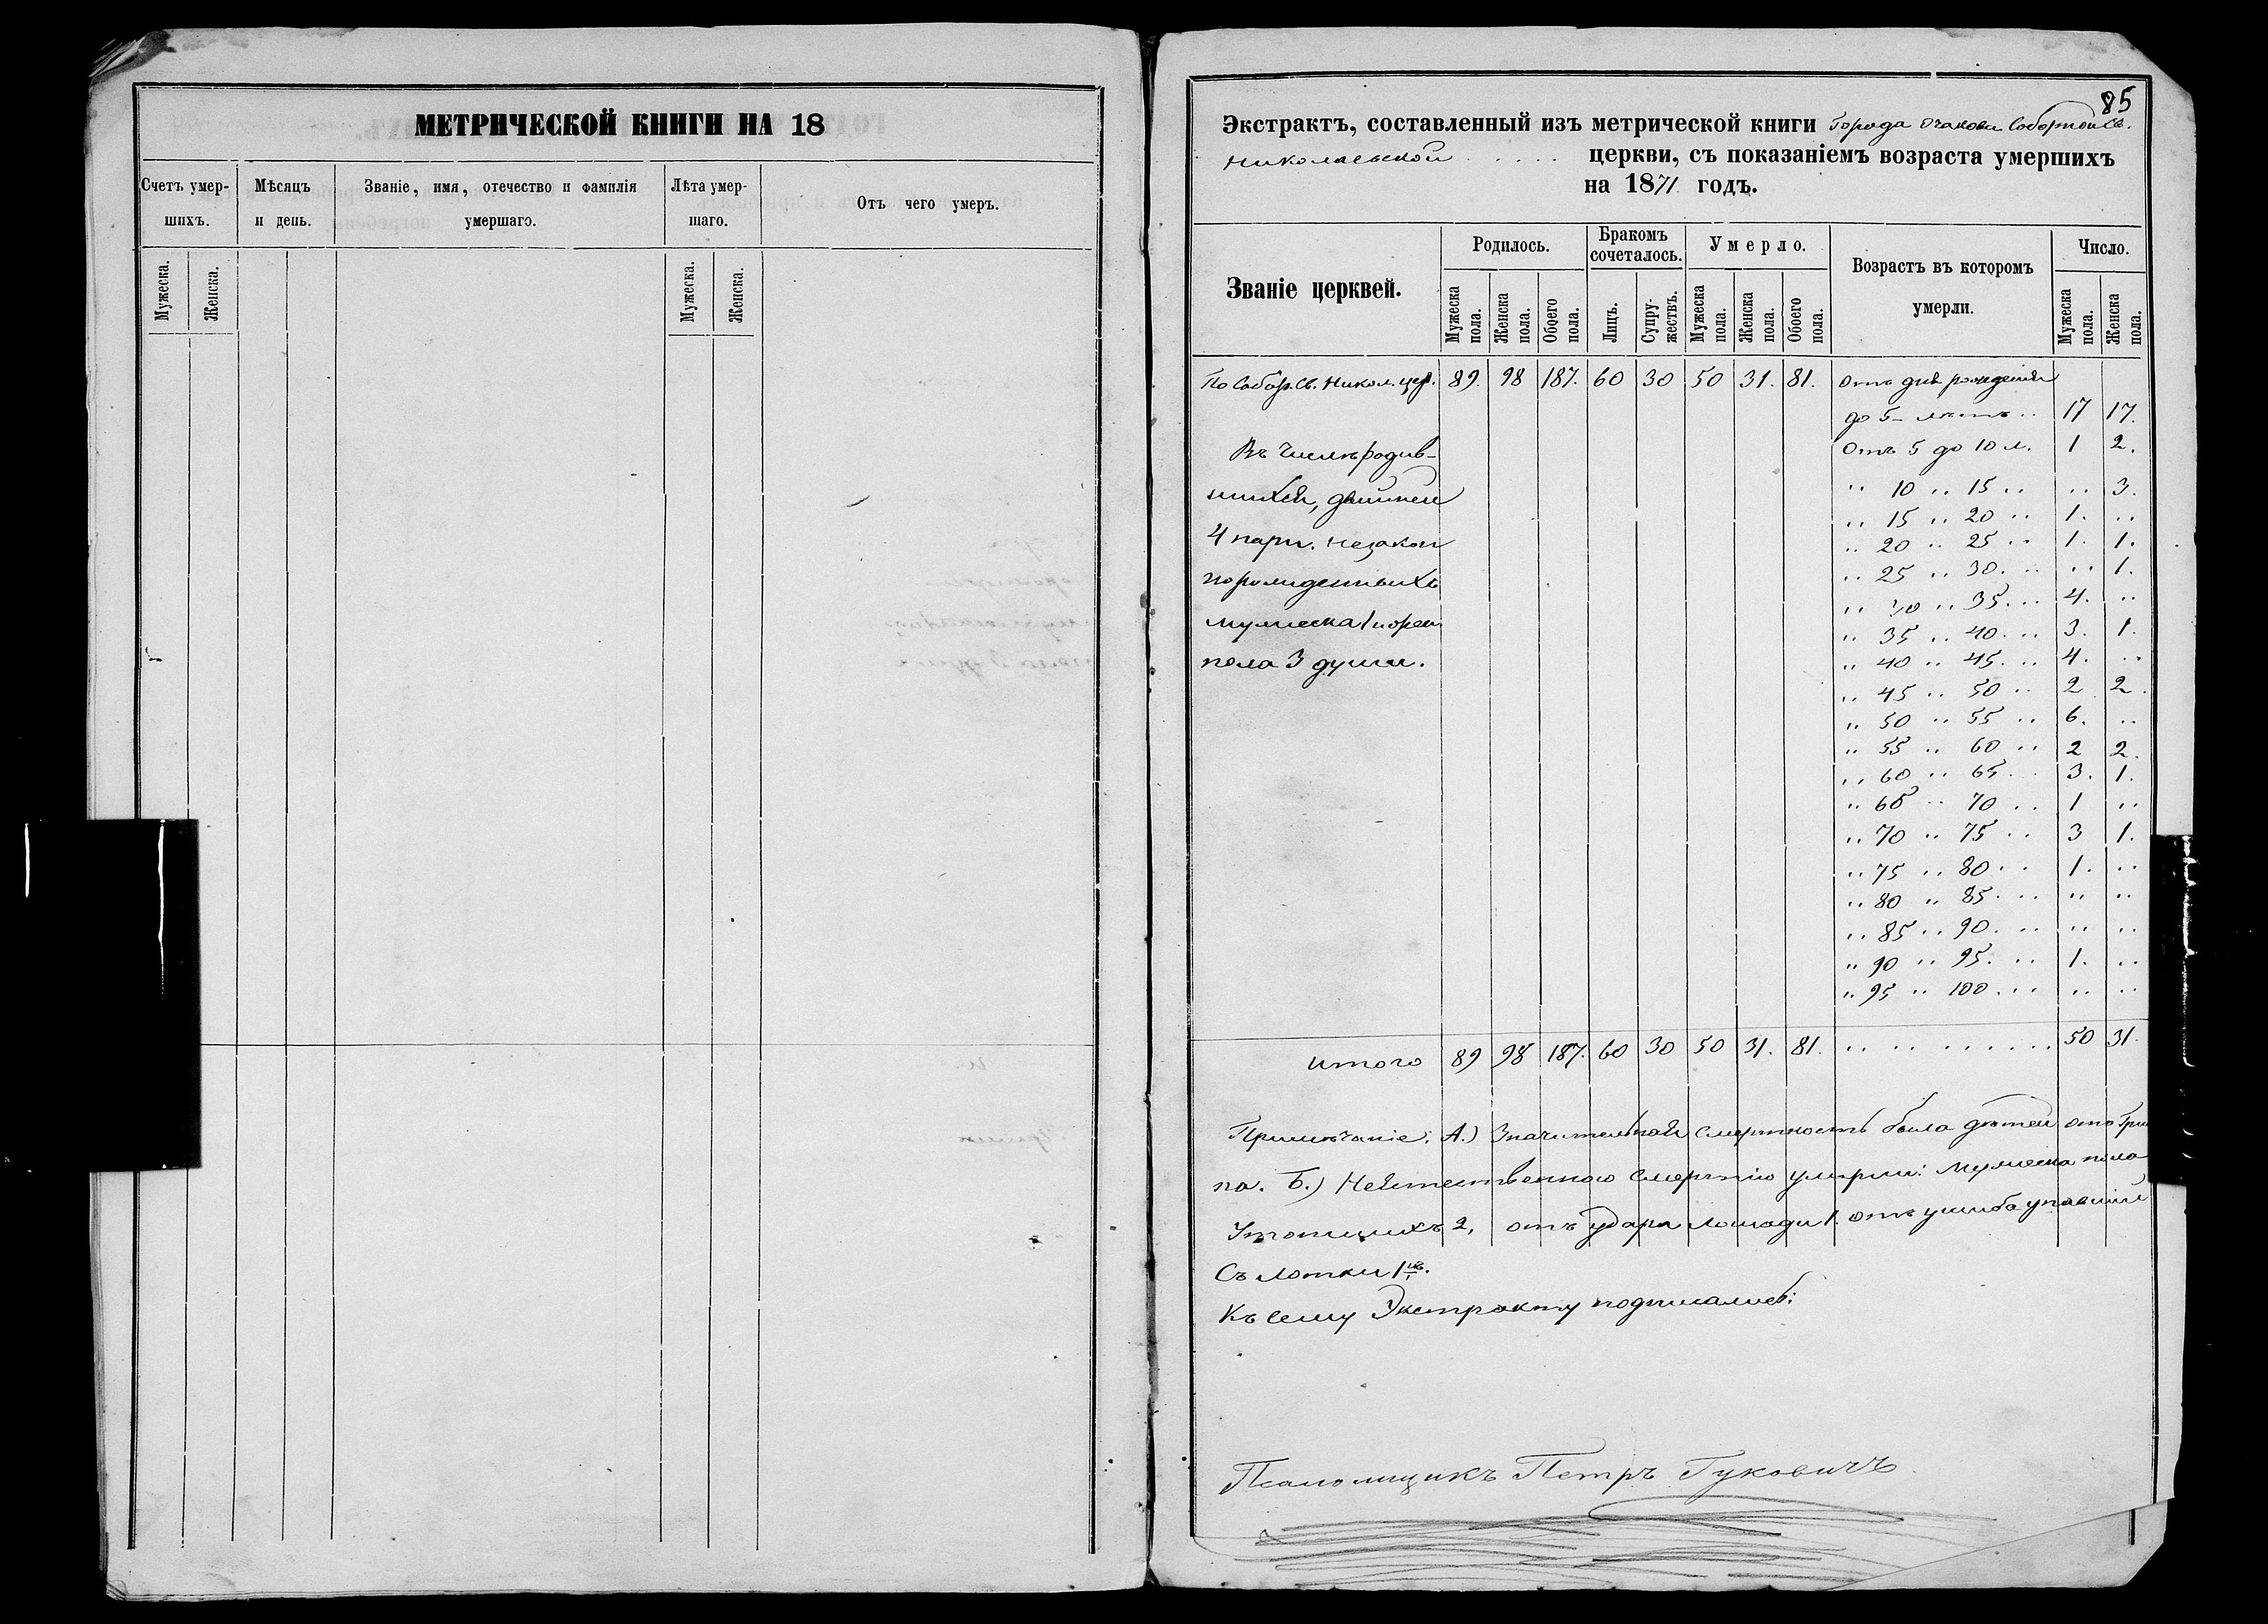 МЕТРИЧЕСКОЙ КНИГИ НА 18
Счетъ умер-
шихъ.
Мѣсяцъ
и день.
Званіе, имя, отечество и фамилія
умершаго.
Лѣта умер-
шаго.
Отъ чего умеръ.
Мужеска.
Женска.
Мужеска.
Женска.
85
Экстрактъ, составленный изъ метрической книги города Очакова Соборной Св.
Николаевской церкви, съ показаніемъ возраста умершихъ
на 1871 годъ.
Званіе церквей.
Родилось.
Бракомъ
сочеталось.
Умерло.
Возрастъ въ которомъ
умерли.
Число.
Мужеска пола.
Женска пола.
Обоего пола.
Лицъ.
Супру-жествъ.
Мужеска пола.
Женска пола.
Обоего пола.
Мужеска пола.
Женска пола.
По Собор. Св. Никол. цер. 89. 98 187. 60 30 50 31. 81. Отъ дня рожденія
до 5 - лѣтъ .. 17 17.
Въ числѣ родив- Отъ 5 до 10 л. 1 2.
шихся, двойней
4 пары. Незакон
порожденныхъ
мужеска 1 и жен
пола 3 души.
" 10 " 15 " .. 3.
" 15 " 20 " 1. ..
" 20 " 25 " 1. 1.
" 25 " 30. " .. 1.
" 30 " 35. .. 4. ..
" 35 " 40. .. 3. 1.
" 40 " 45. .. 4. ..
" 45 " 50 .. 2 2.
" 50 " 55 .. 6. ..
" 55 " 60 .. 2 2.
" 60 " 65 .. 3. 1.
" 65 " 70 .. 1 ..
" 70 " 75 .. 3 1.
" 75 " 80 .. 1. ..
" 80 " 85. .. " ..
" 85 " 90. .. .. ..
" 90 " 95. .. 1. ..
" 95 " 100 ... .. ..
Итого 89 98 187. 60 30 50 31. 81. .. .. .. .. .. 50 31.
Примѣчаніе: А.) Значительная смертность была дѣтей отъ
па. Б.) Неестественною смертію умерли: Мужеска пола
Утопшихъ 2, отъ удара лошади 1. отъ ушиба упавшій
Съ лотки 1
Къ сему Экстракту подписались:
Псаломщикъ Петръ Гуковичъ